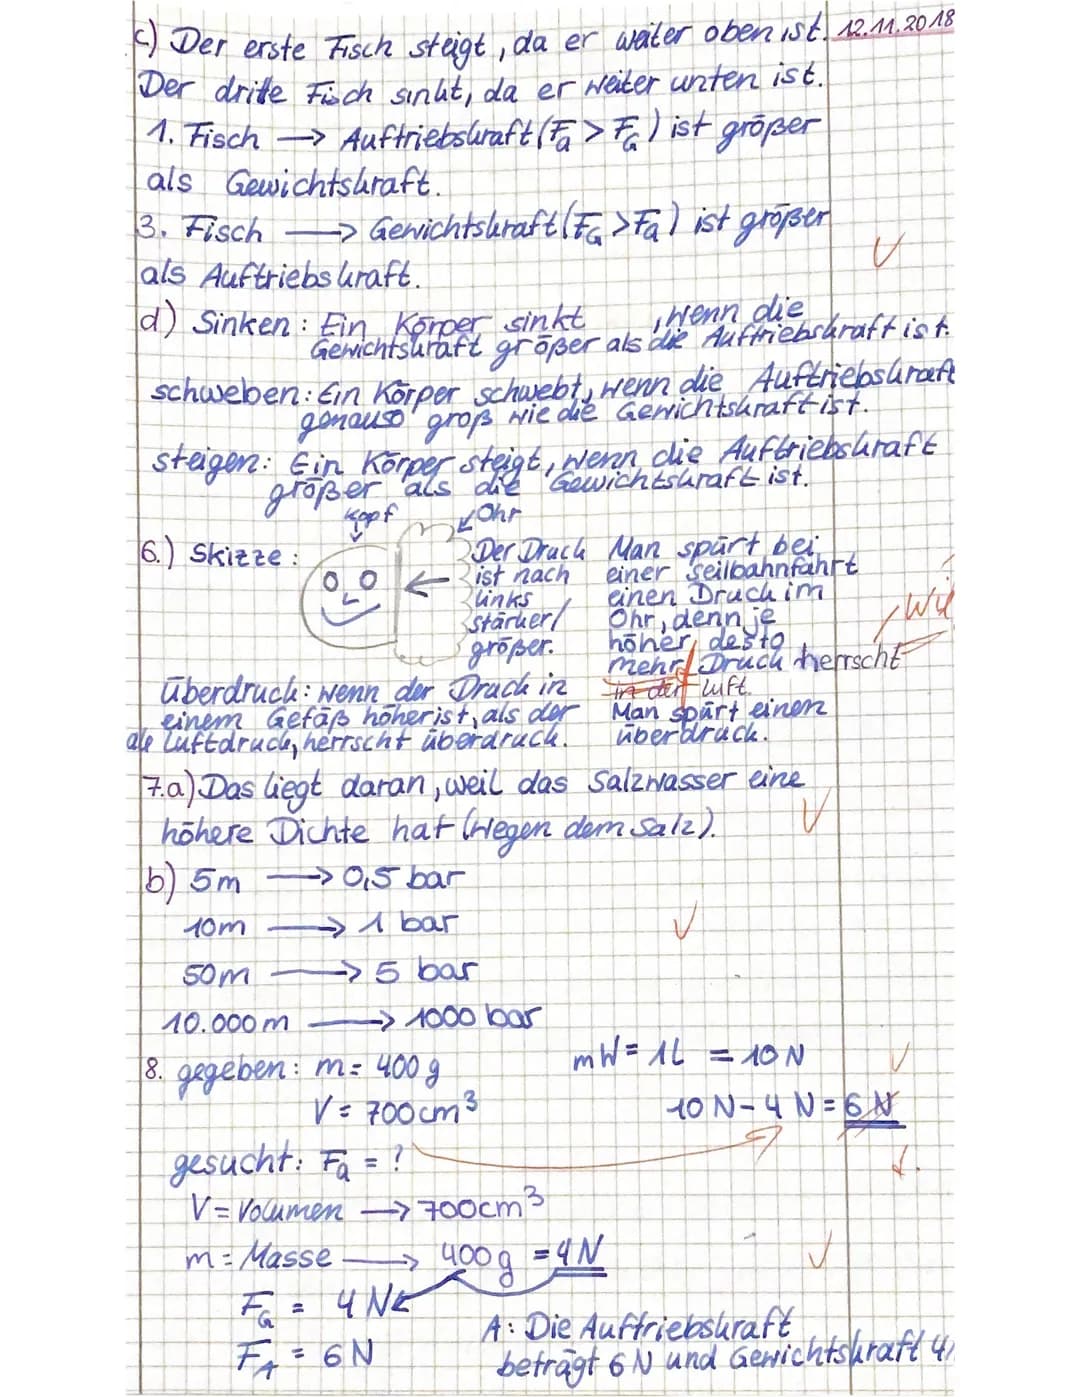 c) Der erste Fisch steigt, da er weiter oben ist. 12.11.2018
Der dritte Fisch sinkt, da er weiter unten ist.
1. Fisch → Auftriebskraft (Fa > FG) ist größer
als Gewichtskraft.
3. Fisch → Gewichtskraft (FG > Fa) ist größer
als Auftriebskraft.
d) Sinken: Ein Körper sinkt, wenn die
Gewichtskraft größer als die Auftriebskraft ist.
schweben: Ein Körper schwebt, wenn die Auftriebskraft
genauso groß wie die Gewichtskraft ist.
steigen: Ein Körper steigt, wenn die Auftriebskraft
größer als die Gewichtskraft ist.
Kopf
Ohr
6.) Skizze:
Der Druck
ist nach
links
stärker/
größer.
Man spürt bei
einer Seilbahnfahrt
einen Druck im
Ohr, denn je
höher, desto
mehr Druck herrscht
in der Luft.
Man spürt einen
überdruck.
überdruck: wenn der Druck in
einem Gefäß höher ist, als der
Luftdruck, herrscht überdruck.
7.a) Das liegt daran, weil das Salzwasser eine
höhere Dichte hat (Wegen dem Salz).
b) 5m → 0,5 bar
10m → 1 bar
50m → 5 bar
10.000m → 1000 bar
8. gegeben: m = 400g
V = 700cm³
mW = 1L = 10N
10N - 4N = 6N
f.
gesucht: Fa = ?
V = Volumen → 700cm³
m = Masse → 400g = 4N
FG = 4N
FA = 6N
A: Die Auftriebskraft
beträgt 6N und Gewichtskraft 4